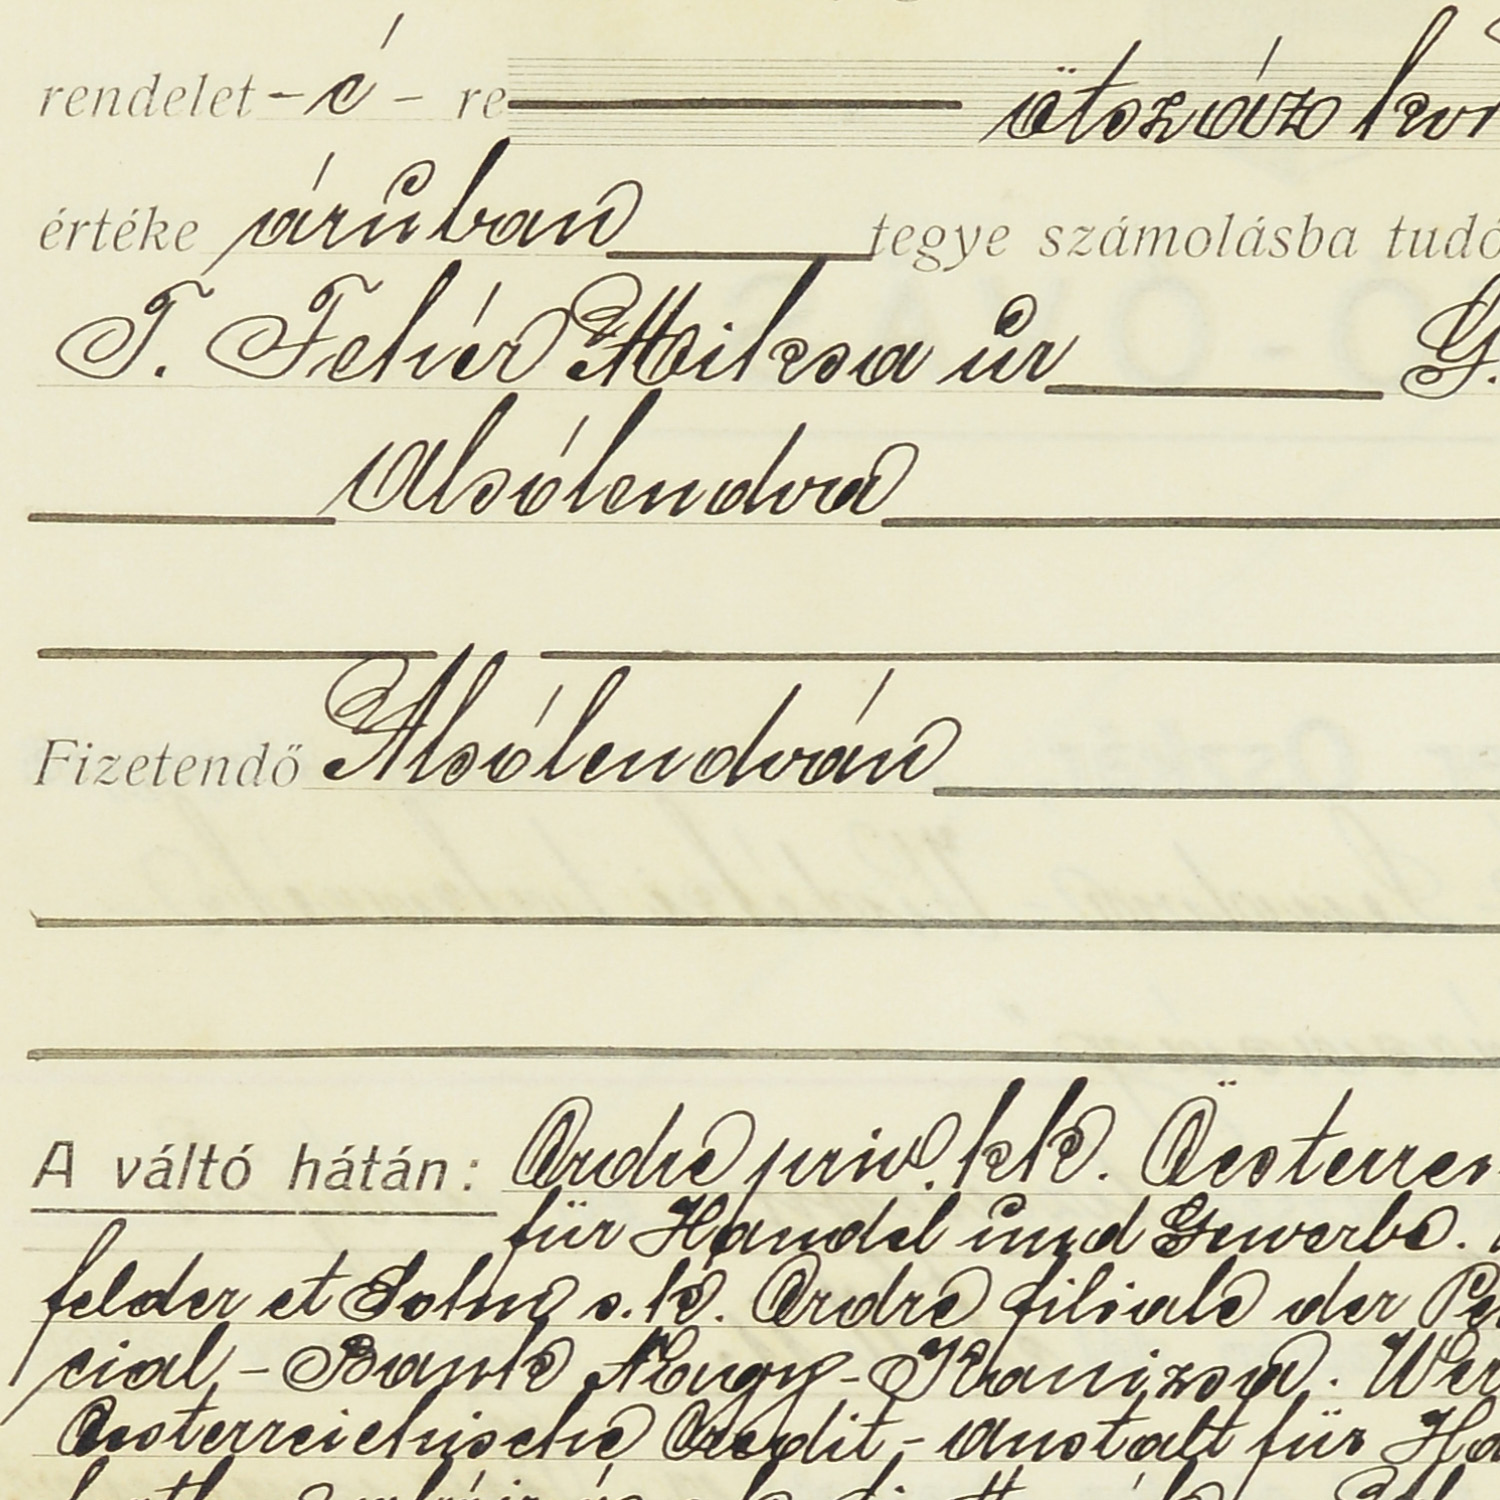 rendelet - é - re ötszáz kor
értéke áruban tegye számolásba tudó
T. Fehér Miksa úr G.
Alsólendva
Fizetendő Alsólendván
A váltó hátán: Ordre priv. kk. Oesterrei
für Handel und Gewerbe.
felder et Sohn s. k. Ordre filiale der Pes
cial-Bank Nagy-Kanizsa. Wer
Oesterreichische Credit-Anstalt für Ha